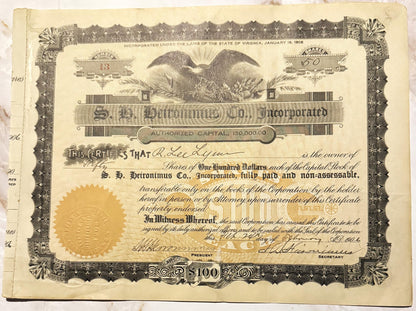 INCORPORATED UNDER THE LAWS OF THE STATE OF VIRGINIA, JANUARY
NUMBER
13
SHARES
50
S. H. Heironimus Co., Incorporated
AUTHORIZED CAPITAL, 150,000.00
THIS CERTIFIES THAT R. Lee is the owner
of Shares of One Hundred Dollars each of the Capital Stock of
S. H. Heironimus Co., Incorporated, fully paid and non-assessable,
transferable only on the books of the Corporation by the holder
hereof in person or by Attorney upon surrender of this Certificate
properly endorsed.
In Witness Whereof, the said Corporation has caused this Certificate to be
signed by its duly authorized officers and to be sealed with the Seal of the Corporation
day of
PRESIDENT
SECRETARY
$100